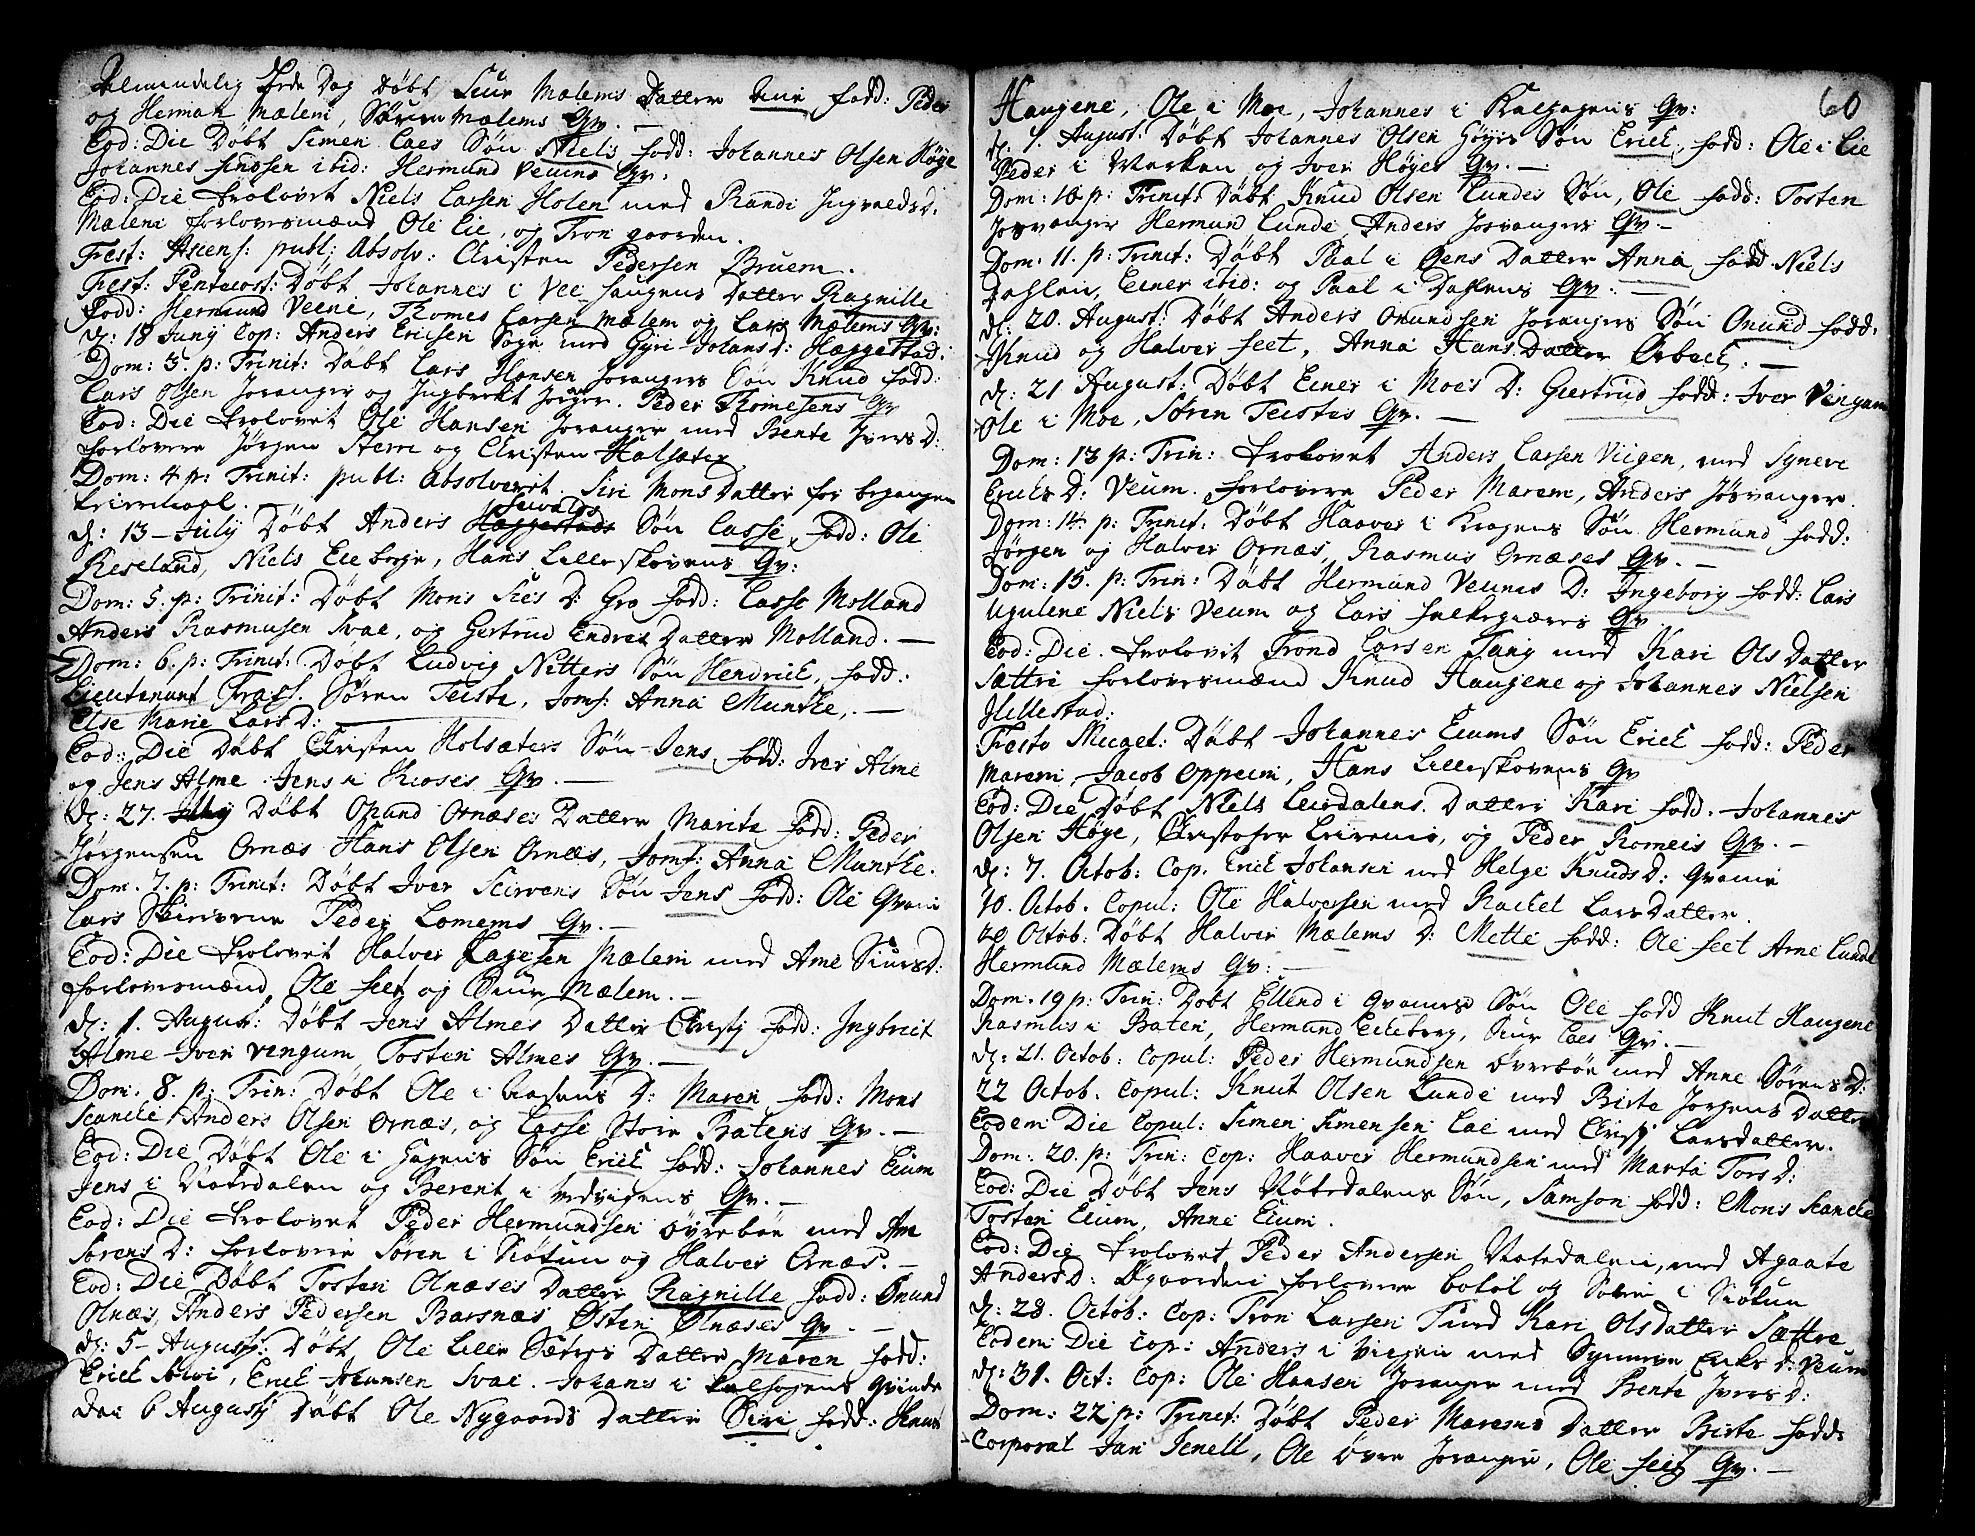 Almindelig Bede Dag Døbt Siur Mælems Datter fadd: Peder
og Mælem, Mælems Qv. —
Eod: Die Døbt Simen Eies Søn Niels fadd: Johannes Olsen Høge
Johannes ibid: Hermund Veums Qv:
Eod: Die trolovet Niels Larsen Holen med Randi IngvaldsD:
Malene forlovsmænd Ole Eie, og Tron gaarden.
Fest: Ascens: publ: Absolv: Christen Pedersen Bruem.
Fest: Pentecost: Døbt Johannes i Vee haugens Datter Ragnille
fadd: Hermund Veene, Thomes Larsen Mælem og Lars Mælems Qv:
d: 18 Juny Cop: Anders Ericsen Sogn med Gyri JohansD: Hæggestad.
Dom: 3. p: Trinit: Døbt Lars Hansen Jorangers Søn Knud fadd:
Lars Olsen Joranger og Ingbrekt Peder Thomesens Qv
Eod: Die trolovet Ole Hansen Joranger med Bente IversD:
forlovere Jørgen Steen og Christen Halsæter
Dom: 4 p: Trinit: publ: absolveret Siri Mons Datter for begangen
Leiermaal.
d: 13 July Døbt Anders Søn Lasse, fadd: Ole
Reseland, Niels Eieberge, Hans Lilleskovens Qv:
Dom: 5. p: Trinit: Døbt Mons D: Gro fadd: Lasse Molland
Anders Rasmusen Svae, og Gertrud Endres Datter Molland. —
Dom: 6. p: Trinit: Døbt Ludvig Nitters Søn Hendrick, fadd:
Lieutenant Frass. Søren Teiste, Jomf: Anna Munthe, —
Else Marie LarsD:
Eod: Die Døbt Christen Holsæters Søn Jens fadd: Iver Alme
og Jens Alme Jens i Qv. —
d: 27. July Døbt Onund Ornæses Datter Marite fadd: Peder
Jørgensen Ornæs Hans Olsen Ornæs, Jomf: Anna Munthe.
Dom. 7. p: Trinit: Døbt Iver Søn Jens fadd: Ole Qvam
Lars Peder Lomems Qv. —
Eod: Die trolovet Halver Mælem med Anne SiursD:
forlovsmænd Ole Seet og Siur Mælem. —
d: 1. August: Døbt Jens Almes Datter Christi fadd: Ingbreit
Alme Iver Vengum Tosten Almes Qv. —
Dom. 8. p: Trin: Døbt Ole i D: Maren fadd: Mons
Scancke Anders Olsen Ornæs, og Lasse Store Batens Qv. —
Eod: Die Døbt Ole i Hagens Søn Erick fadd: Johannes Eium
Jens i Nøtsdalen og Berent i Qv. —
Eod: Die trolovet Peder Hermundsen Øvrebøe med An
SørensD: forlovere Søren i Kiøtun og Halver Ornæs. —
Eod: Die Døbt Tosten Olnæses Datter Ragnille fadd: Onund
Olnæs, Anders Pedersen Barsnæs Østen Olnæses Qv —
d: 5 Augusti: Døbt Ole Lille Sætres Datter Maren fadd:
Erick Erick Johansen Svae. Johans i Qvinde
den 6 Augusti Døbt Ole Nygaards Datter Siri fadd: Knud
60
Haugene, Ole i Moe, Johannes i Qv:
d: 1. August: Døbt Johannes Olsen Høges Søn Erick, fadd: Ole i Eie
Peder i Marken og Iver Høges Qv. —
Dom: 10. p: Trinit: Døbt Knud Olsen Lundes Søn, Ole fadd: Tosten
Josvanger Hermund Lunde Anders Josvangers Qv —
Dom: 11. p: Trinit: Døbt Paal i Øens Datter Anna fadd Niels
Dahlen, Einer ibid: og Paal i Dahlens Qv: —
d: 20. August: Døbt Anders Onundsen Jorangers Søn Onund fadd:
Knud og Halver Seet, Anna Hans Datter Ørbeck. —
d: 21 August: Døbt Einer i Moes D: Giertrud fadd: Iver Vengum
Ole i Moe, Søren Teistes Qv. —
Dom: 13 p: Trin: trolovet Anders Larsen Viigen, med Synere
EricksD: Veum. forlovere Peder Marem, Anders Jøsvanger.
Dom: 14. p: Trinit: Døbt Haaver i Kragens Søn Hermund fadd:
Jørgen og Halver Ornæs, Rasmus Ornæses Qv. —
Dom: 15. p: Trin: Døbt Hermund Veumes D: Ingeborg fadd: Lars
Ugulene Niels Veum og Lars Qv.
Eod: Die. trolovet Trond Larsen Tang med Kari Ols Datter
Sættre forlovsmænd Knud Haugene og Johannes Nielsen
Hillestad:
Festo Michael: Døbt Johannes Eiums Søn Erick fadd: Peder
Marem, Jacob Oppeim, Hans Lilleskovens Qv
Eod: Die Døbt Niels Leirdalens Datter Kari fadd. Johannes
Olsen Høge, Christopher og Peder Romeis Qv. —
d: 7. Octob: Cop. Erick Johansen med Helge KnudsD: Qvame
10. Octob. Copul: Ole Halversen med Rachel LarsDatter.
20 Octob: Døbt Halver Mælems D: Mette fadd: Ole Seet Arne Lunde
Hermund Mælems Qv: —
Dom. 19 p: Trin: Døbt Ellend i Qvames Søn Ole fadd Knut Haugene
Rasmus i Baten, Hermund Eieberg, Siur Eies Qv. —
d: 21. Octob: Copul: Peder Hermundsen Øvrebøe med Anne SørensD:
22 Octob. Copul: Knut Olsen Lunde med Birte Jørgens Datter
Eodem Die Copul: Simen Simensen Eie med Christi Larsdatter.
Dom: 20. p: Trin: Cop: Haaver Hermundsen med Marta TorsD:
Eod: Die Døbt Jens Nøtsdalens Søn, Samson fadd: Mons Scancke
Tosten Eium, Anne Eium.
Eod: Die trolovet Peder Andersen Nøtsdalen, med Agaate
AndersD: Øgaarden forlovere Botol og Søren i Kiøtun
d: 28. Octob: Cop: Tron Larsen Kari Olsdatter Sættre
Eodem Die Cop: Anders i Viigen med EricksD: Veum
d: 31. Oct: Cop: Ole Hansen Joranger med Bente IversD:
Dom: 22 p: Trinit: Døbt Peder Marems Datter Birte fadd:
Corporal Jan Ole Øvre Joranger, Ole Seet Qv. —